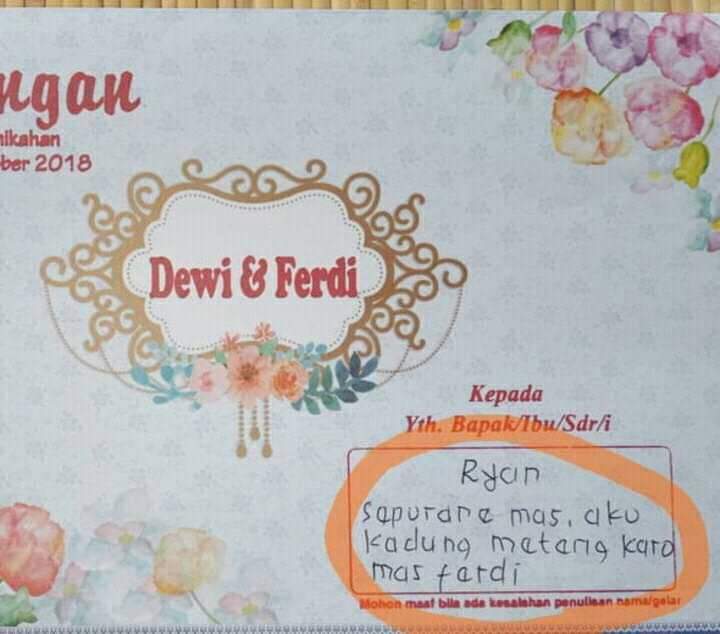 ngan
nikahan
ber 2018
Dewi & Ferdi
Kepada
Yth. Bapak/Ibu/Sdr/i
Ryan
sapurane mas, aku
kadung meteng karo
mas ferdi
Mohon maaf bila ada kesalahan penulisan nama/gelar